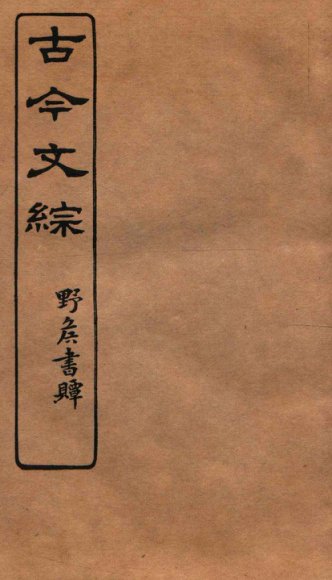 古今文綜
野侯書贉